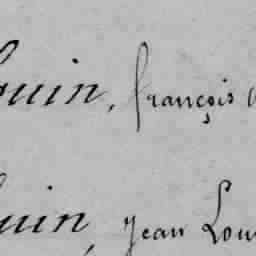 uin, françois
uin, jean Lou